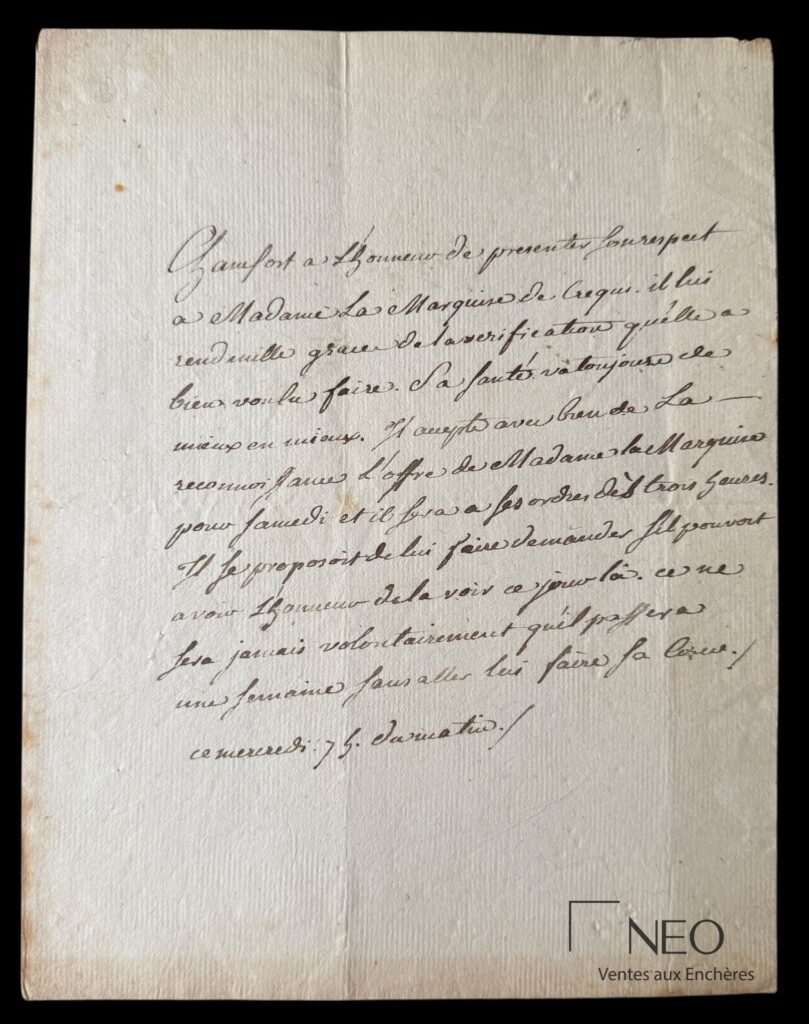 Chamfort a L'honneur de presenter son respect
a Madame La Marquise de Crequi. il lui
rend mille grace de la verification qu'elle a
bien voulu faire. Sa santé va toujours de
mieux en mieux. Il accepte avec bien de La —
reconnoissance L'offre de Madame la Marquise
pour samedi et il sera a ses ordres dès trois heures.
Il se proposoit de lui faire demander s'il pouvoit
avoir L'honneur de la voir ce jour là. ce ne
sera jamais volontairement qu'il passera
une semaine sans aller lui faire sa Cour./
ce mercredi. 7 h. du matin./
NEO
Ventes aux Enchères